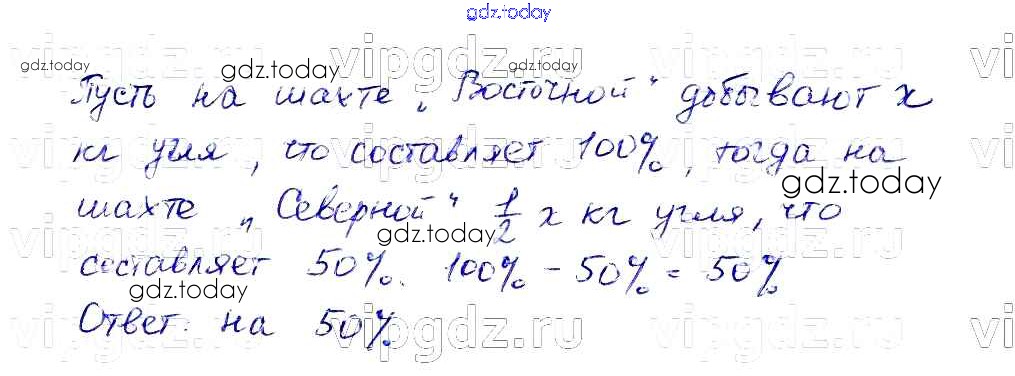 gdz.today
Пусть на шахте „Восточной" добывают x
кг угля, что составляет 100%, тогда на
шахте „Северной" 1/2 x кг угля, что
составляет 50%. 100% - 50% = 50%
Ответ: на 50%.
vipgdz.ru vipgdz.ru vi
gdz.today gdz.today gdz.today
vipgdz.ru vipgdz.ru vi
gdz.today
vipgdz.ru vipgdz.ru vi
gdz.today
gdz.today
vipgdz.ru vipgdz.ru vi